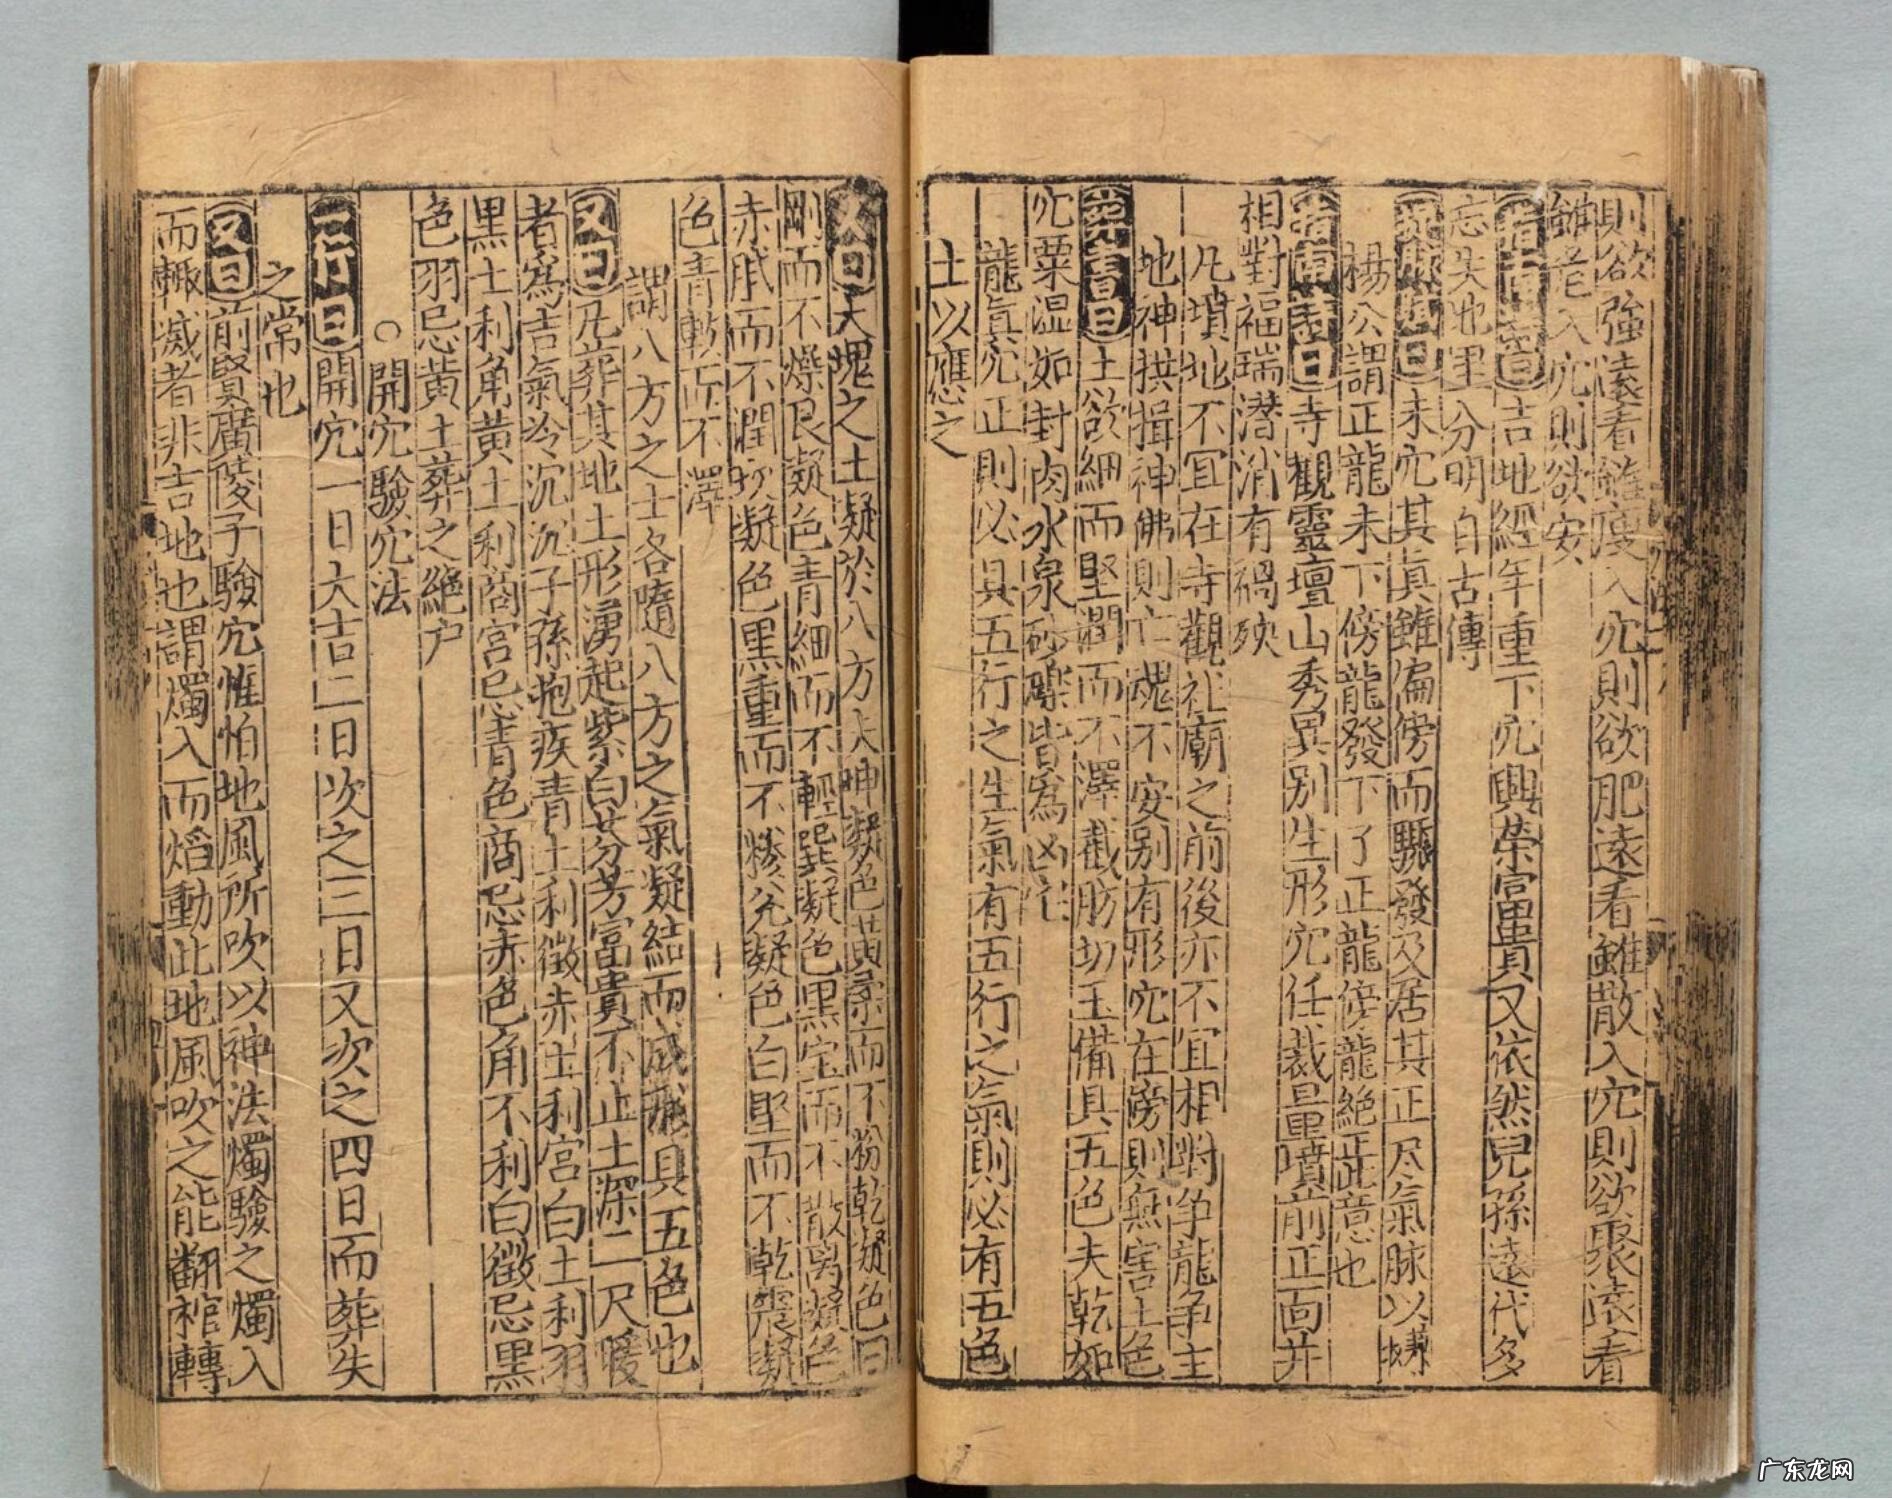 則欲強遠看雖瘦入穴則欲肥遠看雖散入穴則欲聚遠看
雖老入穴則欲安
吉地經年重下穴興榮富貴又依然兒孫遠代多
忘失地里分明自古傳
未穴其真雖偏傍而驟發及居其正尽氣脉以
楊公謂正龍未下傍龍發下了正龍傍龍絕正此意也
指南書曰寺觀靈壇山秀異別生形穴任裁量墳前正面并
相對福瑞潛消有禍殃
凡墳地不宜在寺觀社廟之前後亦不宜相
地神拱揖神佛則亡魂不安別有形穴在傍則無害土色
葬書曰土欲細而堅潤而不澤截肪切玉備具五色夫乾如
穴粟温如封肉水泉砂礫皆為凶宅
龍真穴正則必具五行之生氣有五行之氣則必有五色
土以應之
又曰大塊之土凝於八方夫坤凝色黃柔而不粉乾凝色白
剛而不燥艮凝色青細而不輕巽凝色黑宝而不散离凝色
赤膩而不潤坎凝色黑重而不㷛兌凝色白堅而不乾震凝
色青軟而不澤
謂八方之土各隨八方之氣凝結而成形具五色也
又曰凡葬其地土形湧起紫白芬芳富貴不止土深二尺暖
者為吉氣冷沉沉子孫抱疾青土利徵赤土利宮白土利羽
黑土利角黃土利商宮忌青色商忌赤色角不利白徵忌黑
色羽忌黃土葬之絕户
○開穴驗穴法
開穴一日大吉二日次之三日又次之四日而葬失
之常也
又曰前賢廣陵子驗穴惟怕地風所吹以神法燭驗之燭入
而輙滅者非吉地也謂燭入而焰動此地風吹之能翻棺轉
广东龙网